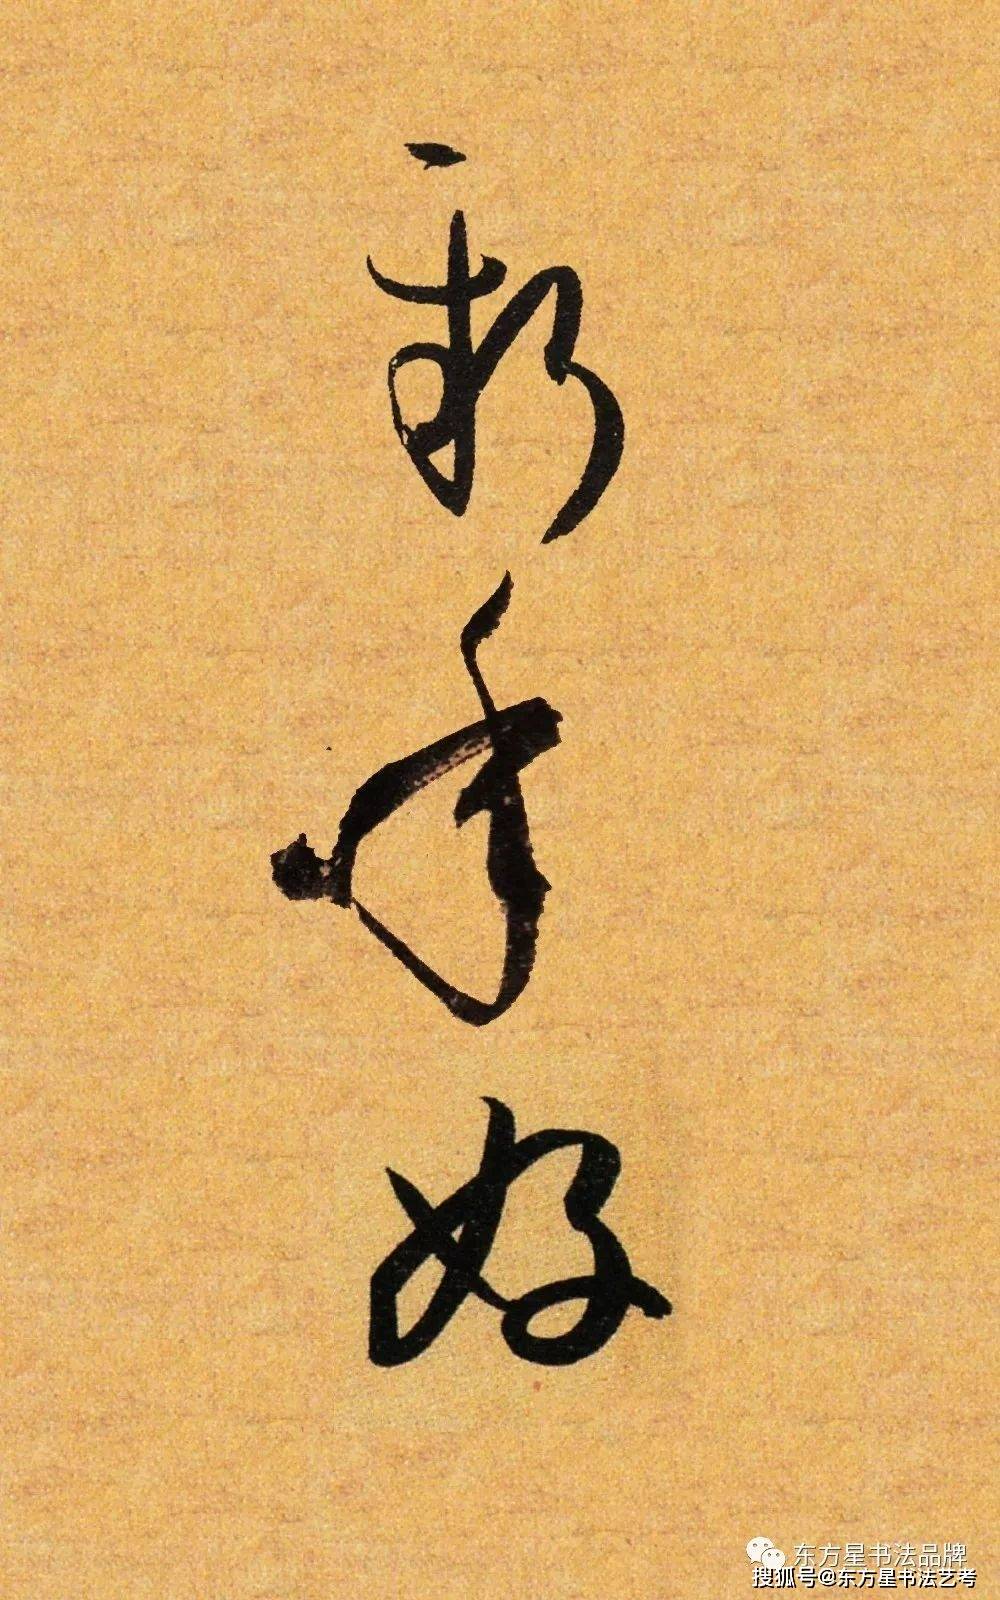 新年好
东方星书法品牌
搜狐号@东方星书法艺考